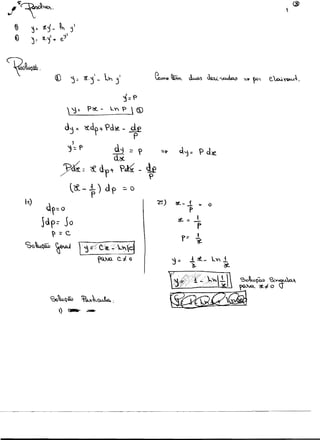 ②
1
Resolva.
1) y = xy' - ln y'
2) y = xy' + e^y'
Solução
① y = x y' - ln y'
Como têm duas => por Clairaut.
y' = P
y = Px - ln P ①
dy = xdp + Pdx - dp/P
y' = P
dy/dx = P => dy = P dx
Pdx = xdp + Pdx - dp/P
(x - 1/P) dp = 0
1º) dp = 0
∫dp = ∫0
P = C
Solução Geral y = Cx - ln|c|
para C≠0
2º) x - 1/P = 0
x = 1/P
P = 1/x
y = 1/x x - ln 1/x
y = 1 - ln|1/x| Solução Singular para x≠0
Solução Particular.
1)